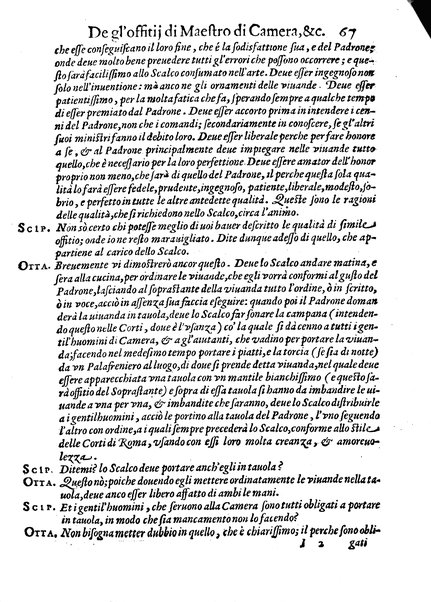 De gl'offitij di Maestro di Camera, &c. 67
che esse conseguiscano il loro fine, che é la sodisfattione sua, e del Padrone;
onde deue molto bene preuedere tutti gl'errori che possono occorrere; e que-
sto sarà facilissimo allo Scalco consumato nell'arte. Deue esser ingegnoso non
solo nell'inuentione: mà anco ne gli ornamenti delle viuande. Deue esser
patientissimo, per la molta fatica che fa, sperando sempre a qualche tempo
di esser premiato dal Padrone. Deue esser accorto prima in intendere i cen-
ni del Padrone, non che i comandi; secondariamente in conoscere, se gl'altri
suoi ministri fanno il debito loro. Deue esser liberale perche per fare honore
a se, & al Padrone principalmente deue impiegare nelle viuande tutto
quello, che è necessario per la loro perfettione. Deue esser amator dell'honor
proprio non meno, che farà di quello del Padrone, il perche questa sola qua
lità lo farà essere fedele, prudente, ingegnoso, patiente, liberale, modesto, so-
brio, e perfetto in tutte le altre antedette qualità. Queste sono le ragioni
delle qualità, che si richiedono nello Scalco, circa l'animo.
SCIP. Non sò certo chi potesse meglio di uoi hauer descritto le qualità di simile
offitio; onde io ne resto marauigliato. Dite dunque adesso di quello, che ap-
partiene al carico dello Scalco.
OTTA. Breuemente vi dimostrerò ancor questo. Deue lo Scalco andare matina, e
sera alla cucina, per ordinare le viuande, che egli vorrà conformi al gusto del
Padrone, lasciando al soprastante della viuanda tutto l'ordine, ò in scritto,
ò in voce, acciò in assenza sua faccia eseguire: quando poi il Padrone doman
derà la viuanda in tauola, deue lo Scalco far sonare la campana (intenden-
do questo nelle Corti, doue è l'vsanza) cò la quale si dà cenno a tutti i gen-
til'huomini di Camera, & a gl'aiutanti, che vadino per portare la viuan-
da; facendo nel medesimo tempo portare i piatti, e la torcia (se sia di notte)
da vn Palafreniero al luogo, di doue si prende detta viuanda, nel quale deue
essere apparecchiata vna tauola con vn mantile bianchissimo (e questo sa-
rà offitio del Soprastante) e sopra di essa tauola si hanno da imbandire le ui-
uande a vna per vna, & imbandite che saranno, deue lo Scalco distribuirle
a i gentilhuomini, acciò le portino alla tauola del Padrone, l'vno seguendo
l'altro con ordine, a i quali sempre precederà lo Scalco, conforme allo stile
delle Corti di Roma, vsando con essi loro molta creanza, & amoreuo-
lezza.
SCIP. Ditemi? lo Scalco deue portare anch'egli in tauola?
OTTA. Questo nò; poiche douendo egli mettere ordinatamente le viuande nella ta-
uola, deue anco esser libero affatto di ambi le mani.
SCIP. Et i gentil'huomini, che seruono alla Camera sono tutti obligati a portare
in tauola, in modo che sia mancamento non lo facendo?
OTTA. Non bisogna metter dubbio in quello, che è chiarissimo; il perche sono obli-
I 2 gati